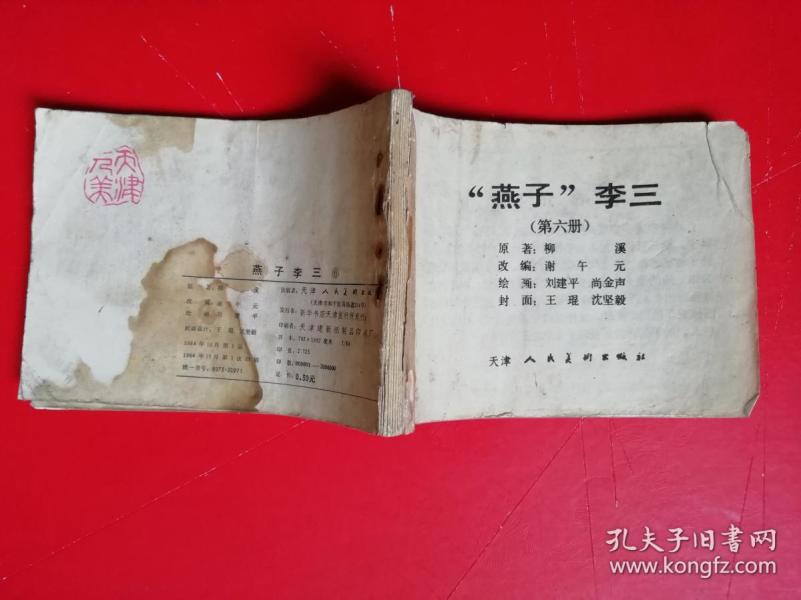 天津
人美
燕子李三 ⑥
出版者：天津人民美术出版社
发行者：新华书店天津发行所发行
印刷者：天津建新纸制品印刷厂
装帧设计：王琨 沈坚毅
1984年10月第1版
1984年10月第1次印刷
统一书号：8073·30971
开本：787×1092毫米 1/64
印张：2.125
定价：0.39元
“燕子”李三
（第六册）
原著：柳溪
改编：谢午元
绘画：刘建平 尚金声
封面：王琨 沈坚毅
天津人民美术出版社
孔夫子旧书网
www.kongfz.com